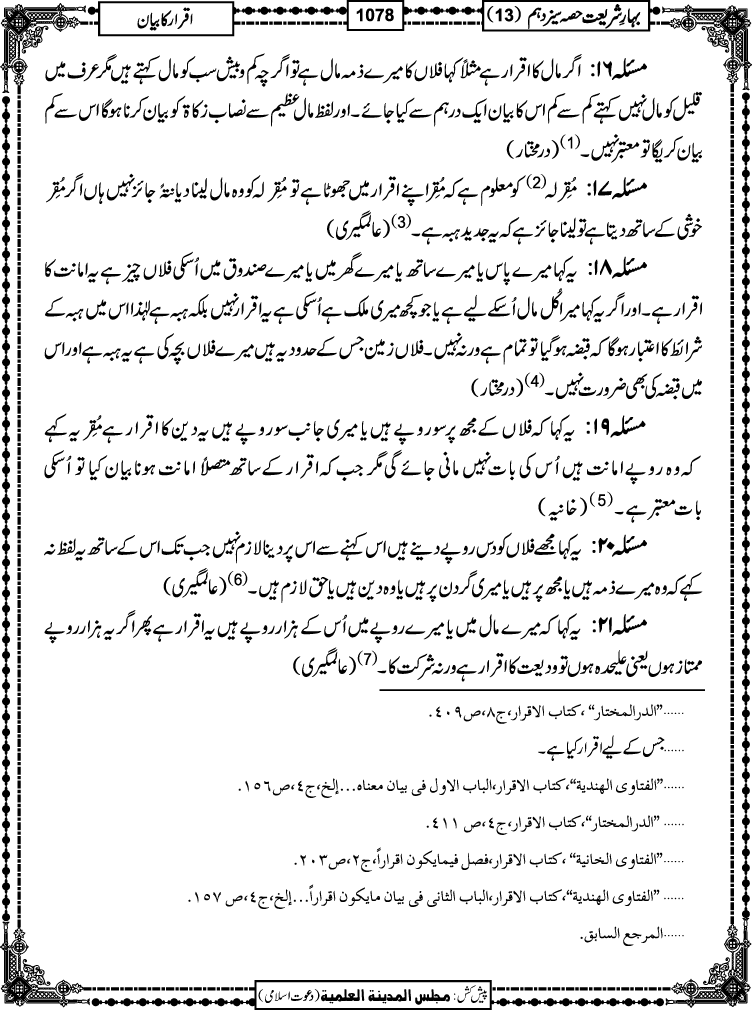 بہارِ شریعت حصہ سیزدہم (13)
1078
اقرار کا بیان
مسئلہ ۱۶: اگر مال کا اقرار ہے مثلاً کہا فلاں کا میرے ذمہ مال ہے تو اگرچہ کم و بیش سب کو مال کہتے ہیں مگر عرف میں
قلیل کو مال نہیں کہتے کم سے کم اس کا بیان ایک درہم سے کیا جائے۔ اور لفظ مال عظیم سے نصاب زکاۃ کو بیان کرنا ہوگا اس سے کم
بیان کریگا تو معتبر نہیں۔(1) (درمختار)
مسئلہ ۱۷: مُقِرلہ(2) کو معلوم ہے کہ مُقِر اپنے اقرار میں جھوٹا ہے تو مُقِرلہ کو وہ مال لینا دیانۃً جائز نہیں ہاں اگر مُقِر
خوشی کے ساتھ دیتا ہے تو لینا جائز ہے کہ یہ جدید ہبہ ہے۔(3) (عالمگیری)
مسئلہ ۱۸: یہ کہا میرے پاس یا میرے ساتھ یا میرے گھر میں یا میرے صندوق میں اُسکی فلاں چیز ہے یہ امانت کا
اقرار ہے۔ اور اگر یہ کہا میرا کُل مال اُسکے لیے ہے یا جو کچھ میری ملک ہے اُسکی ہے یہ اقرار نہیں بلکہ ہبہ ہے لہٰذا اس میں ہبہ کے
شرائط کا اعتبار ہوگا کہ قبضہ ہوگیا تو تمام ہے ورنہ نہیں۔ فلاں زمین جس کے حدود یہ ہیں میرے فلاں بچہ کی ہے یہ ہبہ ہے اور اس
میں قبضہ کی بھی ضرورت نہیں۔(4) (درمختار)
مسئلہ ۱۹: یہ کہا کہ فلاں کے مجھ پر سو روپے ہیں یا میری جانب سو روپے ہیں یہ دین کا اقرار ہے مُقِر یہ کہے
کہ وہ روپے امانت ہیں اُس کی بات نہیں مانی جائے گی مگر جب کہ اقرار کے ساتھ متصلاً امانت ہونا بیان کیا تو اُسکی
بات معتبر ہے۔(5) (خانیہ)
مسئلہ ۲۰: یہ کہا مجھے فلاں کو دس روپے دینے ہیں اس کہنے سے اس پر دینا لازم نہیں جب تک اس کے ساتھ یہ لفظ نہ
کہے کہ وہ میرے ذمہ ہیں یا مجھ پر ہیں یا میری گردن پر ہیں یا وہ دین ہیں یا حق لازم ہیں۔(6) (عالمگیری)
مسئلہ ۲۱: یہ کہا کہ میرے مال میں یا میرے روپے میں اُس کے ہزار روپے ہیں یہ اقرار ہے پھر اگر یہ ہزار روپے
ممتاز ہوں یعنی علیحدہ ہوں تو ودیعت کا اقرار ہے ورنہ شرکت کا۔(7) (عالمگیری)
......”الدرالمختار“، کتاب الاقرار،ج۸،ص۴۰۹.
......جس کے لیے اقرار کیا ہے۔
......”الفتاوی الھندیة“،کتاب الاقرار،الباب الاول فی بیان معناہ...إلخ،ج٤،ص١٥٦.
......”الدرالمختار“،کتاب الاقرار،ج٤،ص ٤١١.
......”الفتاوی الخانیة“، کتاب الاقرار،فصل فیمایکون اقراراً،ج٢،ص٢٠٣.
......”الفتاوی الھندیة“،کتاب الاقرار،الباب الثانی فی بیان مایکون اقراراً...إلخ،ج٤،ص ١٥٧.
......المرجع السابق.
پیش کش: مجلس المدینة العلمیة (دعوت اسلامی)